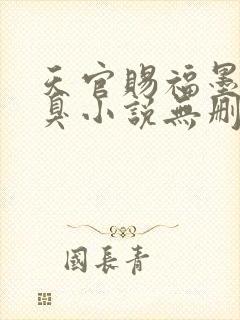 天官賜福墨
臭小説無刪
國長青